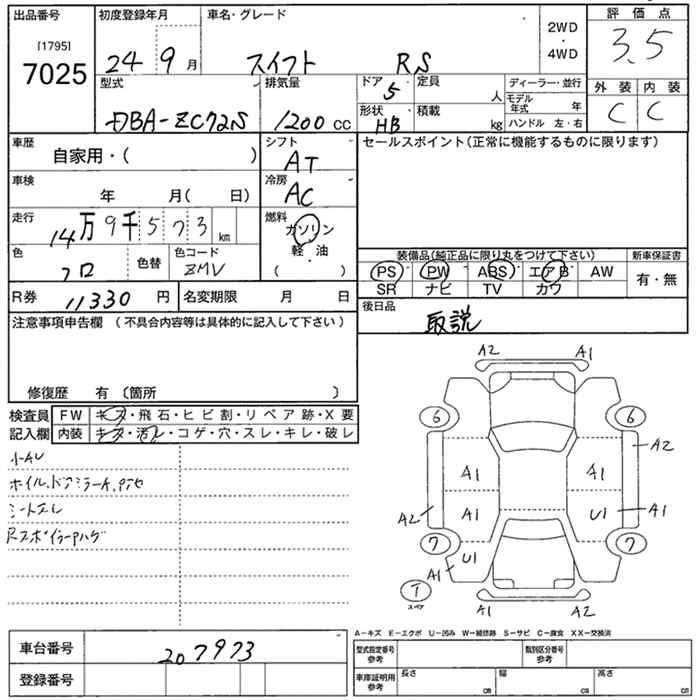 出品番号
[1795]
7025
初度登録年月
24 9 月
車名・グレード
スイフト RS
2WD
・
4WD
評価点
3.5
外装 内装
C C
型式
DBA-ZC72S
排気量
1200 cc
ドア 5
形状 HB
定員 人
積載 kg
ディーラー・並行
モデル年式 年
ハンドル 左・右
車歴
自家用・( )
シフト
AT
セールスポイント(正常に機能するものに限ります)
車検
年 月( 日)
冷房
AC
走行
14万9千573km
燃料
ガソリン
軽・油
( )
色
クロ
色替
色コード
ZMV
装備品(純正品に限り丸をつけて下さい)
PS PW ABS エアB AW
SR ナビ TV カワ
新車保証書
有・無
R券 11330 円
名変期限 月 日
後日品
取説
注意事項申告欄 (不具合内容等は具体的に記入して下さい)
修復歴 有 〔箇所 〕
検査員
記入欄
FW キズ・飛石・ヒビ割・リペア跡・X要
内装 キズ・汚レ・コゲ・穴・スレ・キレ・破レ
小AU
ホイル、ドアミラーA、
シートスレ
Rスポイラー
A2 A1
6 6
A2
A1 A1
A2 A1 U1 A1
7 7
A1 U1
T
スペア
A1 A2
A-キズ E-エクボ U-凹み W-補修跡 S-サビ C-腐食 XX-交換済
車台番号 207973
登録番号
型式指定番号
参考
類別区分番号
参考
車庫証明用
参考
長さ cm
幅 cm
高さ cm